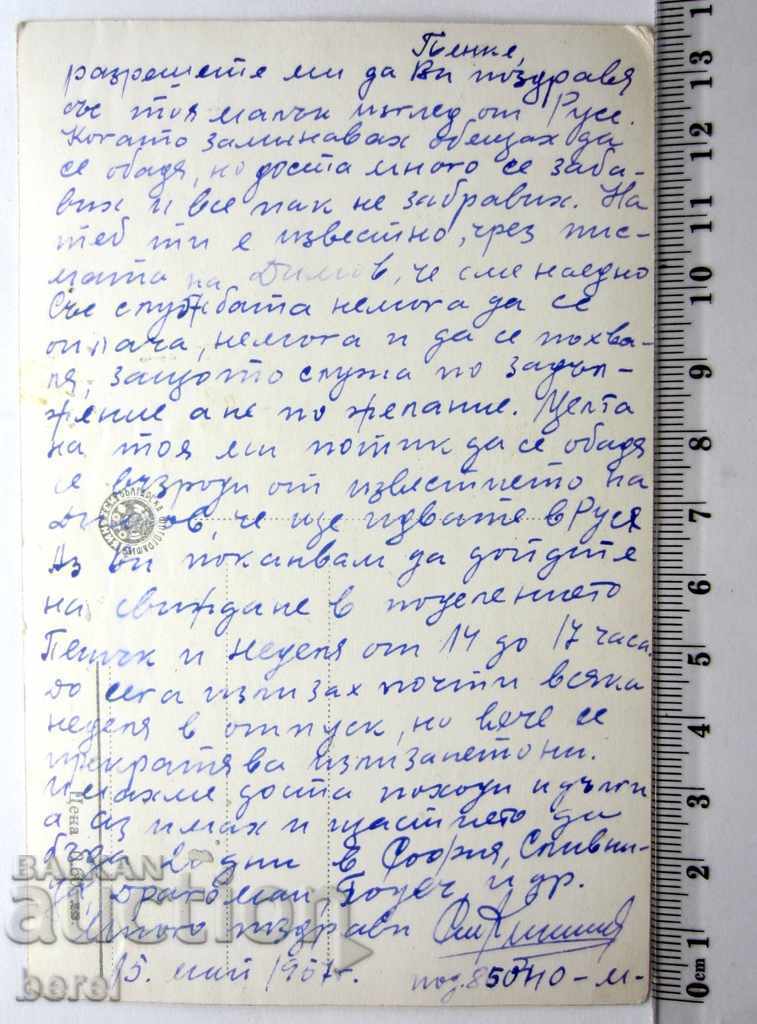 Пенке,
разрешете ми да Ви поздравя
със тоя малък изглед от Русе.
Когато заминавах обещах да
се обадя, но доста много се заба-
вих и все пак не забравих. На
теб ти е известно, чрез пис-
мата на Димов, че сме наедно
Със службата немога да се
оплача, немога и да се похва-
ля, защото служа по задъл-
жение а не по желание. Целта
на тоя ми потик да се обадя
се възроди от известието на
Димов, че ще идвате в Русе
Аз Ви поканвам да дойдите
на свиждане в поделението
Петък и неделя от 14 до 17 часа.
до сега излизах почти всяка
неделя в отпуск, но вече се
прекратява излизането ни.
Имахме доста походи и дълги
а аз имах и щастието да
бъда дни в София, Сливни-
ца, Драгоман, Годеч и др.
Много поздрави
15. май 1967г. под. 85010-М-
Цена
BALKAN
auction
berel
0cm 1 2 3 4 5 6 7 8 9 10 11 12 13 1